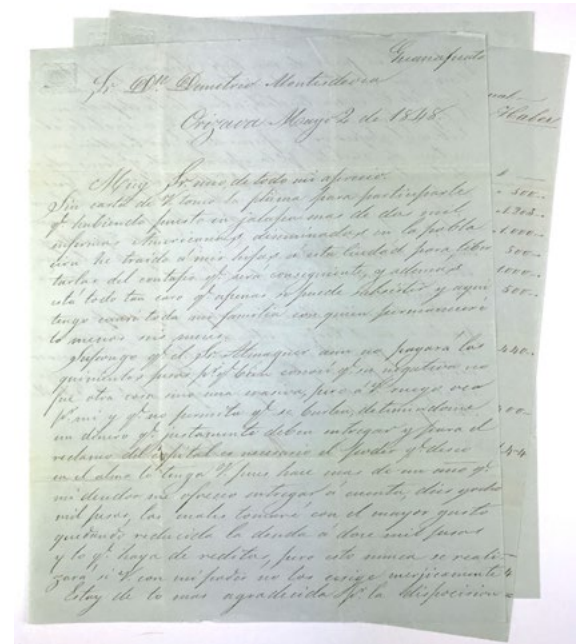 Guanajuato
Sr. Dn. Demetrio Montesdeoca
Orizava Mayo 2 de 1848.
Muy Sr. mio de todo mi aprecio.
Sin carta de V. tomo la pluma para participarle
qe habiendo puesto en Jalapa mas de dos mil
enfermos Americanos diseminados en la pobla
cion he traido a mis hijas a esta Ciudad para liber
tarlas del contagio qe será consiguiente, y ademas
está todo tan caro qe apenas se puede subsistir y aqui
tengo toda mi familia con quien permaneceré
lo menos un mes.
Supongo qe el Sr. Almaguer aun no pagará los
quinientos pesos pr qe bien conocí qe su negativa no
fue otra cosa sino una evasiva, pero a V. ruego vea
pr mi y qe no permita qe se burlen deteniendome
un dinero qe justamente deben entregar y para el
reclamo del capital es necesario el poder qe deseo
en el alma lo tenga V. pues hace mas de un año qe
mi deudor me ofrece entregar á cuenta, dies y ocho
mil pesos, los cuales tomaré con el mayor gusto
quedando reducida la deuda á doce mil pesos
y lo qe haya de reditos, pero esto nunca se reali
zará si V. con mi poder no los exige
Estoy de lo mas agradecida pr la disposicion
Haber
500
1.000
500
1000
500